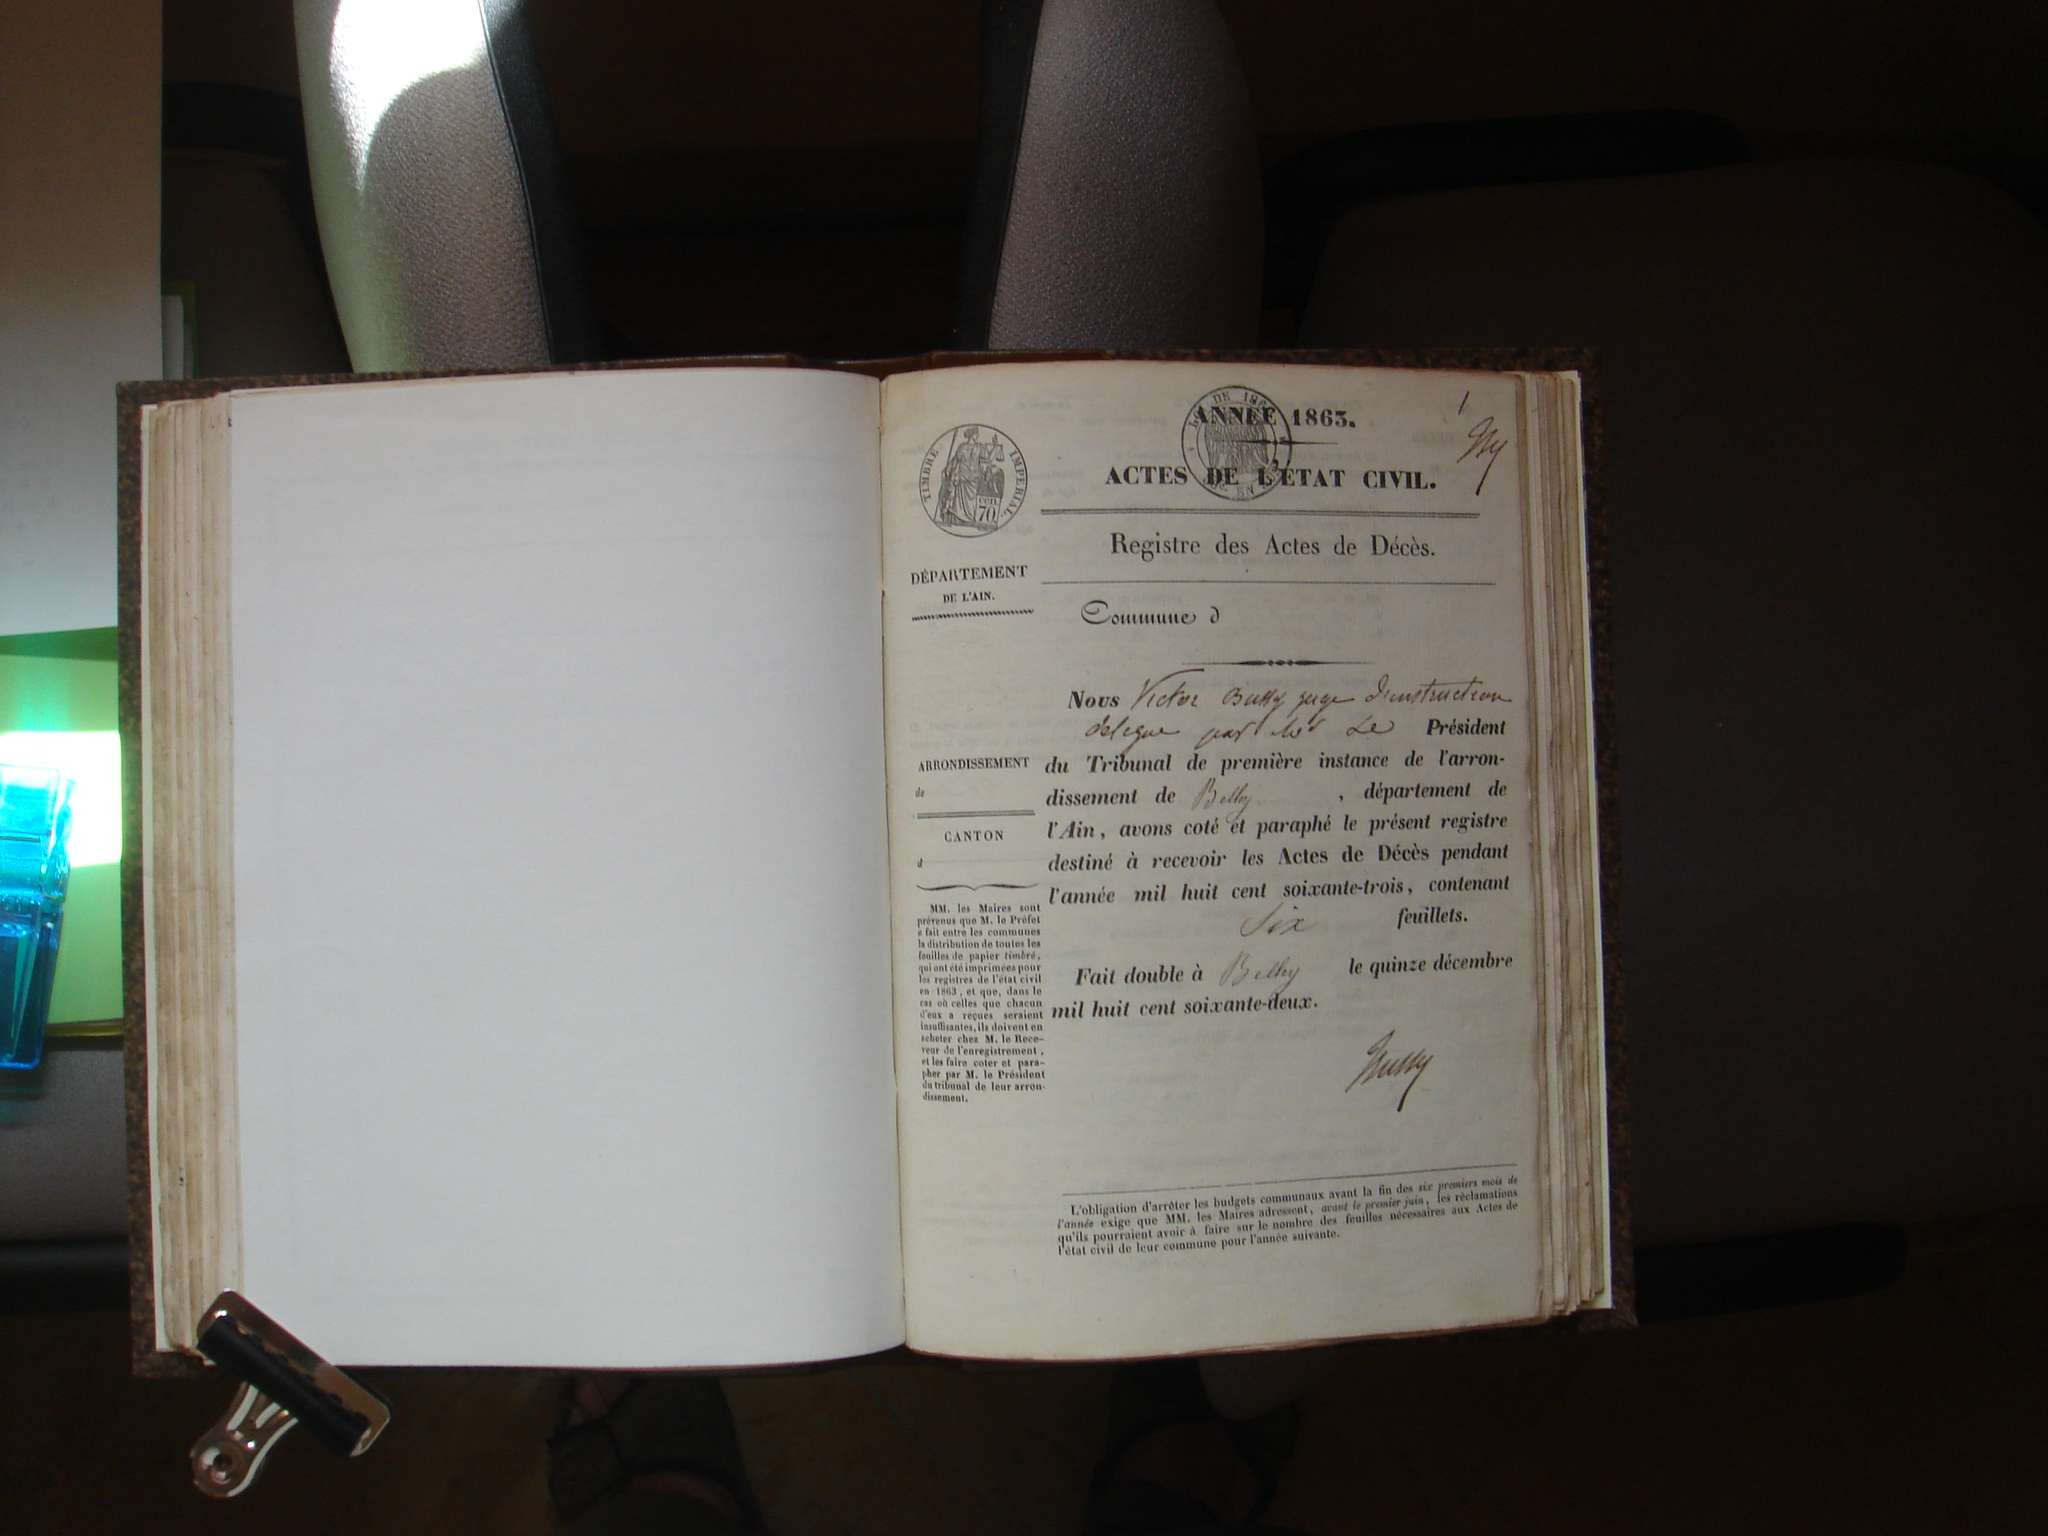 1
ANNÉE 1863.
ACTES DE L'ÉTAT CIVIL.
Registre des Actes de Décès.
Commune d
TIMBRE IMPERIAL
CEN. 70
DÉPARTEMENT
DE L'AIN.
ARRONDISSEMENT
de
CANTON
d
MM. les Maires sont
prévenus que M. le Préfet
a fait entre les communes
la distribution de toutes les
feuilles de papier timbré,
qui ont été imprimées pour
les registres de l'état civil
en 1863, et que, dans le
cas où celles que chacun
d'eux a reçues seraient
insuffisantes, ils doivent en
acheter chez M. le Rece-
veur de l'enregistrement,
et les faire coter et para-
pher par M. le Président
du tribunal de leur arron-
dissement.
Nous Victor Bussy juge d'instruction
delegue par Mr Le Président
du Tribunal de première instance de l'arron-
dissement de Belley, département de
l'Ain, avons coté et paraphé le présent registre
destiné à recevoir les Actes de Décès pendant
l'année mil huit cent soixante-trois, contenant
Six feuillets.
Fait double à Belley le quinze décembre
mil huit cent soixante-deux.
Bussy
L'obligation d'arrêter les budgets communaux avant la fin des six premiers mois de
l'année exige que MM. les Maires adressent, avant le premier juin, les réclamations
qu'ils pourraient avoir à faire sur le nombre des feuilles nécessaires aux Actes de
l'état civil de leur commune pour l'année suivante.